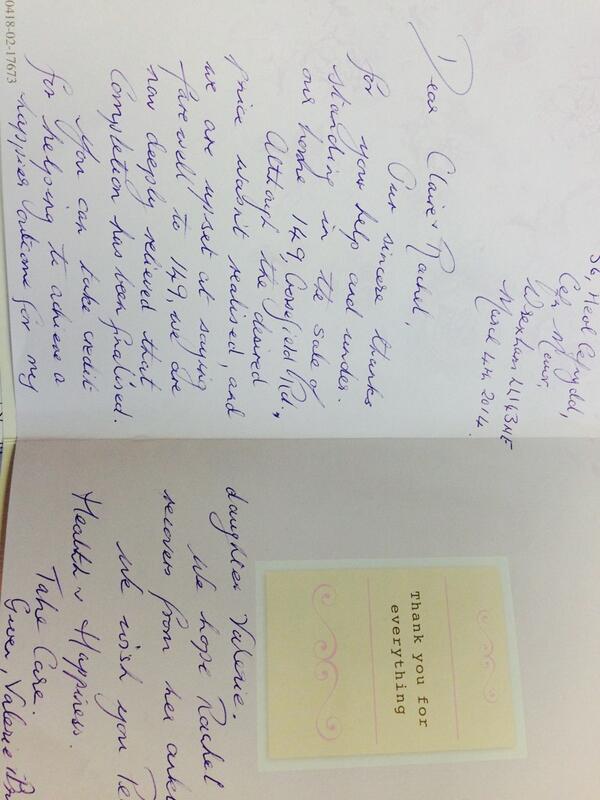 36, Heol Cefnydd,
Cefn Mawr,
Wrexham LL14 3NE
March 4th 2014.
Dear Claire & Rachel,
Our sincere thanks
for your help and under-
standing in the sale of
our home 149, Crossfield Rd.,
Although the desired
price wasn't realised, and
we are upset at saying
farewell to 149, we are
now deeply relieved that
Completion has been finalised.
You can take credit
for helping to achieve a
happier outcome for my
Thank you for
everything
daughter Valerie.
We hope Rachel
recovers from her
We wish you
Health & Happiness.
Take Care.
Gwen, Valerie
0418-02-17673